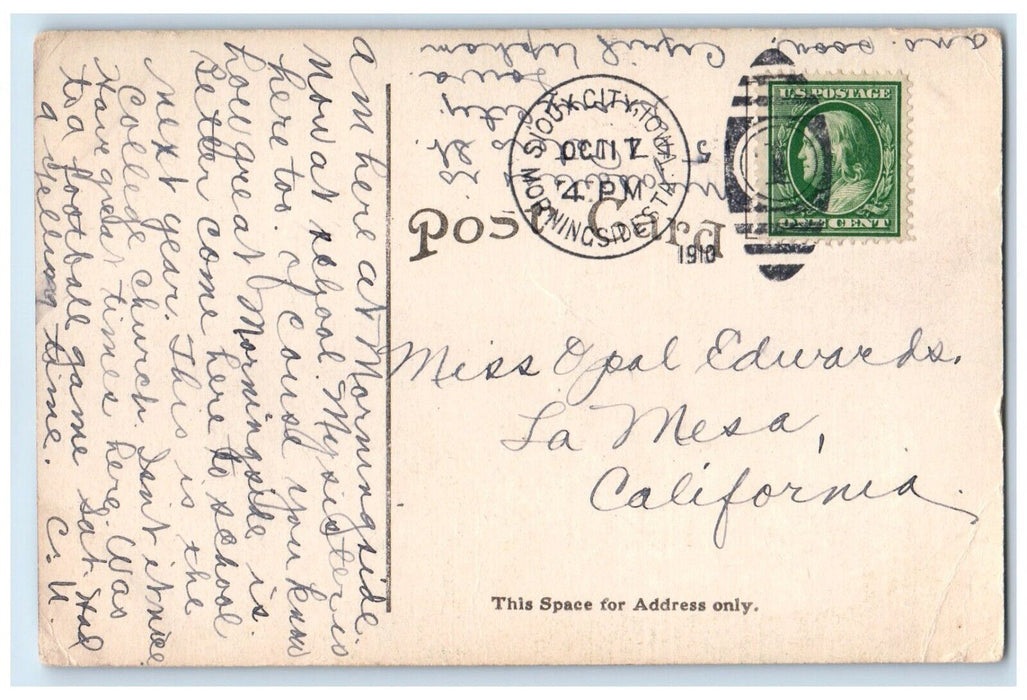 am here at Morningside
now at school. My sister is
here too. Of course you know
how great Morningside is
Better come here to school
next year. This is the
College church. Isnt it nice
Have great times here. Was
to a football game sat. Had
a yelling time. C. U.
ans. soon.
Cyril Upham
Iowa
City
St.
5
SIOUX CITY, IOWA.
OCT 17
4 PM
MORNINGSIDE STA.
1910
U.S. POSTAGE
ONE CENT
Post Card
Miss Opal Edwards.
La Mesa,
California.
This Space for Address only.